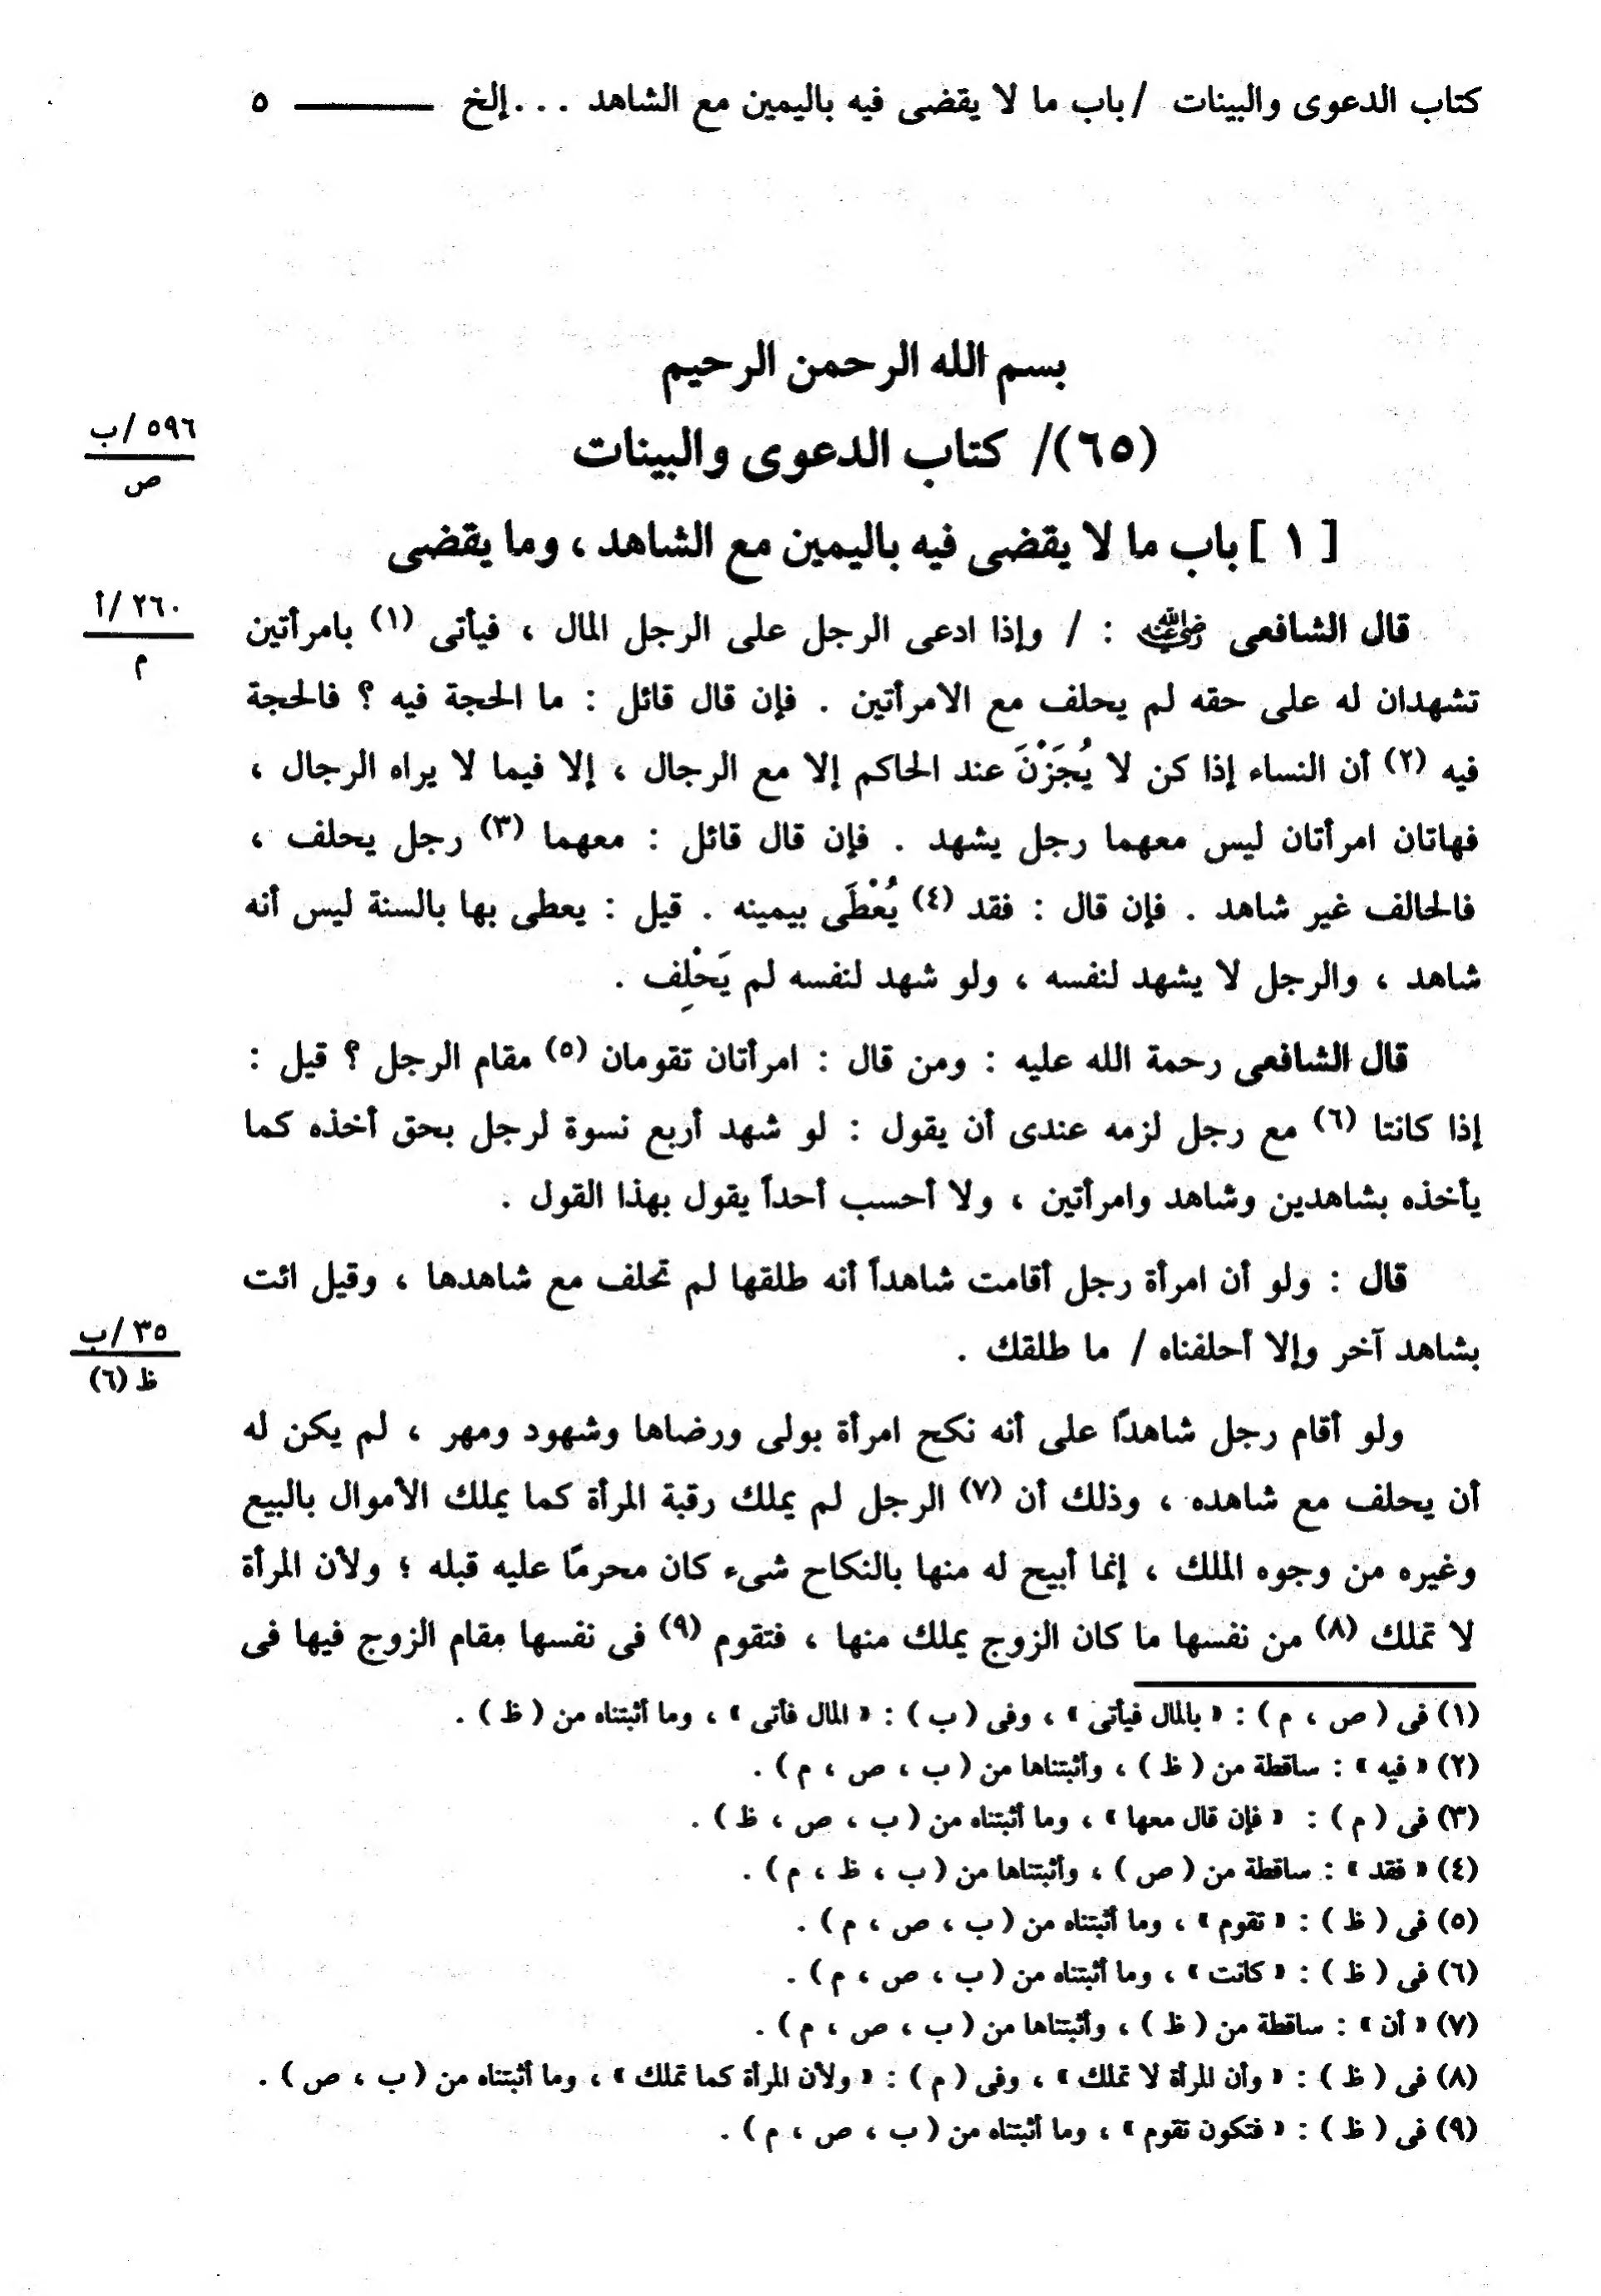 كتاب الدعوى والبينات / باب ما لا يقضى فيه باليمين مع الشاهد . . . إلخ ——— ٥
بسم الله الرحمن الرحيم
٥٩٦ /ب
ص
(٦٥)/ كتاب الدعوى والبينات
[ ١ ] باب ما لا يقضى فيه باليمين مع الشاهد ، وما يقضى
٢٦٠ /أ
م
قال الشافعى رضي الله عنه : / وإذا ادعى الرجل على الرجل المال ، فيأتى (١) بامرأتين
تشهدان له على حقه لم يحلف مع الامرأتين . فإن قال قائل : ما الحجة فيه ؟ فالحجة
فيه (٢) أن النساء إذا كن لا يُجَزْنَ عند الحاكم إلا مع الرجال ، إلا فيما لا يراه الرجال ،
فهاتان امرأتان ليس معهما رجل يشهد . فإن قال قائل : معهما (٣) رجل يحلف ،
فالحالف غير شاهد . فإن قال : فقد (٤) يُعْطَى بيمينه . قيل : يعطى بها بالسنة ليس أنه
شاهد ، والرجل لا يشهد لنفسه ، ولو شهد لنفسه لم يَحْلِف .
قال الشافعى رحمة الله عليه : ومن قال : امرأتان تقومان (٥) مقام الرجل ؟ قيل :
إذا كانتا (٦) مع رجل لزمه عندى أن يقول : لو شهد أربع نسوة لرجل بحق أخذه كما
يأخذه بشاهدين وشاهد وامرأتين ، ولا أحسب أحداً يقول بهذا القول .
قال : ولو أن امرأة رجل أقامت شاهداً أنه طلقها لم تحلف مع شاهدها ، وقيل ائت
بشاهد آخر وإلا أحلفناه / ما طلقك .
٣٥ /ب
ظ (٦)
ولو أقام رجل شاهدًا على أنه نكح امرأة بولى ورضاها وشهود ومهر ، لم يكن له
أن يحلف مع شاهده ، وذلك أن (٧) الرجل لم يملك رقبة المرأة كما يملك الأموال بالبيع
وغيره من وجوه الملك ، إنما أبيح له منها بالنكاح شىء كان محرمًا عليه قبله ؛ ولأن المرأة
لا تملك (٨) من نفسها ما كان الزوج يملك منها ، فتقوم (٩) فى نفسها مقام الزوج فيها فى
(١) فى ( ص ، م ) : « بالمال فيأتى » ، وفى ( ب ) : « المال فأتى » ، وما أثبتناه من ( ظ ) .
(٢) « فيه » : ساقطة من ( ظ ) ، وأثبتناها من ( ب ، ص ، م ) .
(٣) فى ( م ) : « فإن قال معها » ، وما أثبتناه من ( ب ، ص ، ظ ) .
(٤) « فقد » : ساقطة من ( ص ) ، وأثبتناها من ( ب ، ظ ، م ) .
(٥) فى ( ظ ) : « تقوم » ، وما أثبتناه من ( ب ، ص ، م ) .
(٦) فى ( ظ ) : « كانت » ، وما أثبتناه من ( ب ، ص ، م ) .
(٧) « أن » : ساقطة من ( ظ ) ، وأثبتناها من ( ب ، ص ، م ) .
(٨) فى ( ظ ) : « وأن المرأة لا تملك » ، وفى ( م ) : « ولأن المرأة كما تملك » ، وما أثبتناه من ( ب ، ص ) .
(٩) فى ( ظ ) : « فتكون تقوم » ، وما أثبتناه من ( ب ، ص ، م ) .